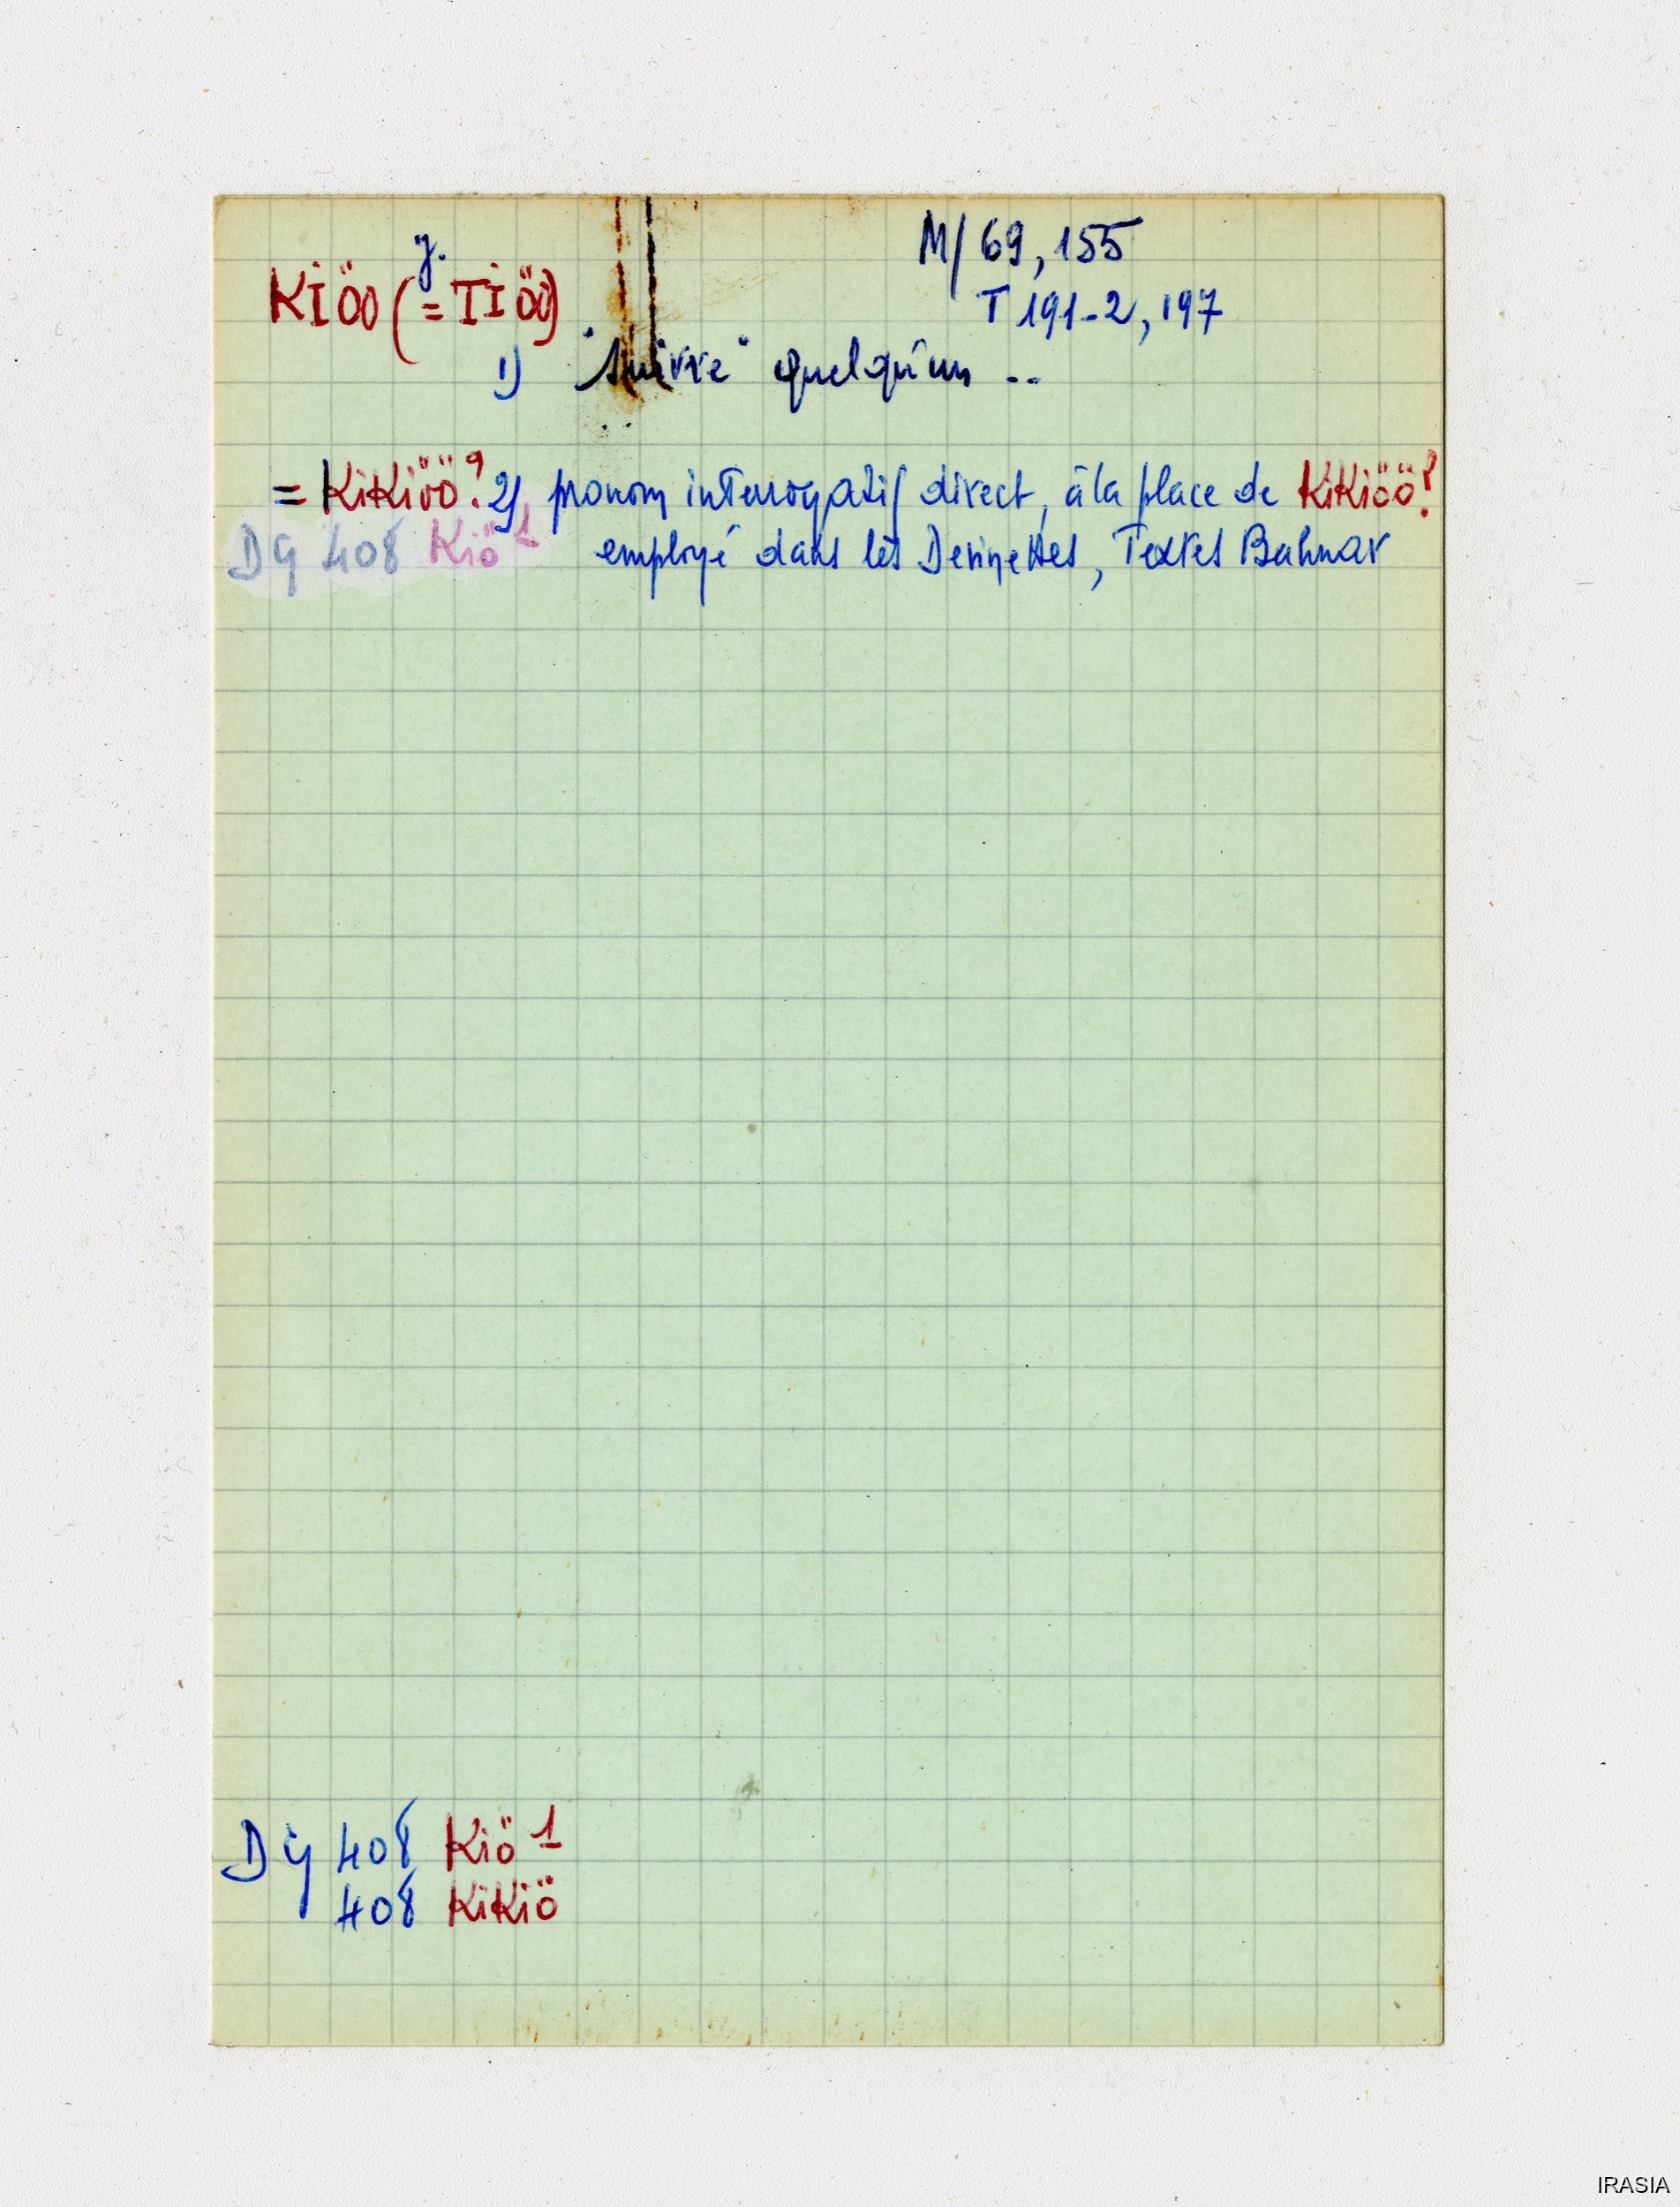 M/ 69, 155
y.
KIÖO (= TIÖO)
T 191-2, 197
1) "suivre" quelqu'un ..
= KiKiöö? 2) pronom interrogatif direct, à la place de KiKiöö?
DG 408 Kiö 1 employé dans les Devinettes, Textes Bahnar
DG 408 Kiö 1
408 KiKiö
IRASIA